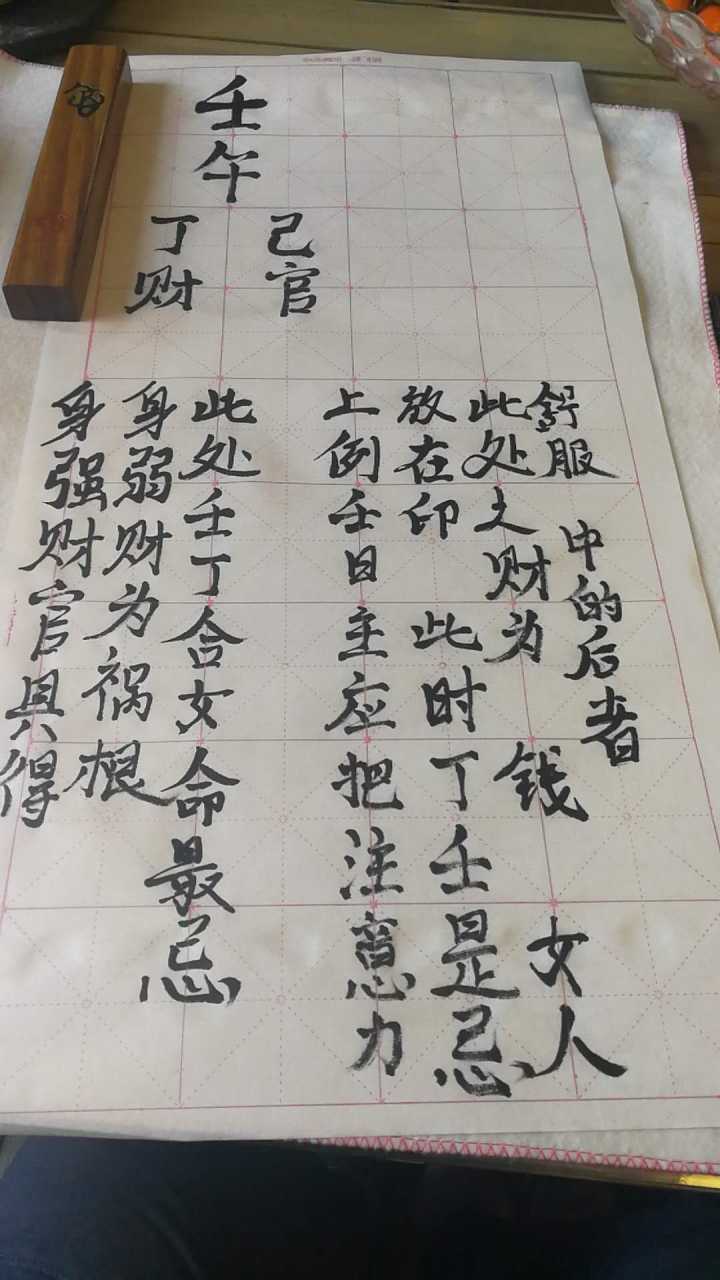 壬午
丁财
己官
身强财官具得
身弱财为祸根
此处壬丁合女命最忌
上例壬日主应把注意力
放在印 此时丁壬是忌
此处之财为 钱 女人
舒服 中的后者